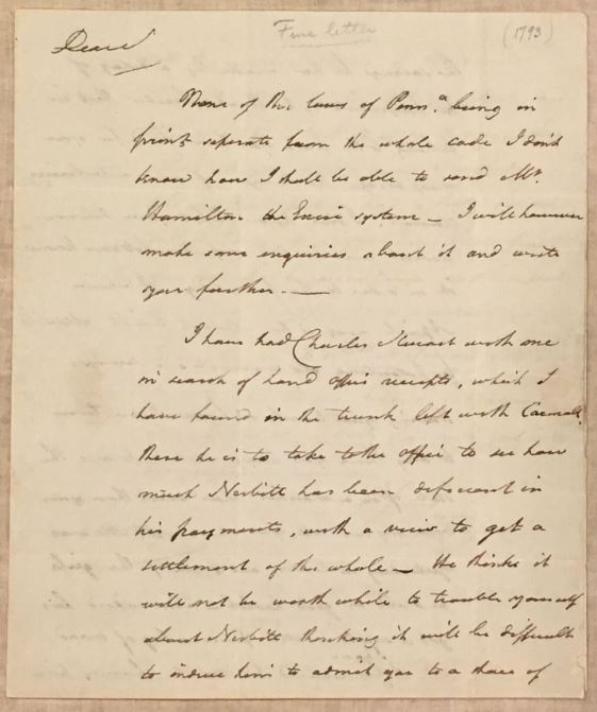 Fine letter
(1793)
Dear
None of the laws of Penn.a being in
print seperate from the whole code I don't
know how I shall be able to send Mr.
Hamilton the Excise system — I will however
make some enquiries about it and write
you further. —
I have had Charles Stewart with one
in search of land office receipts, which I
have found in the trunk left with
these he is to take to the office to see how
much Nesbitt has been deficient in
his payments, with a view to get a
settlement of the whole — He thinks it
will not be worth while to trouble yourself
about Nesbitt thinking it will be difficult
to induce him to admit you to a share of